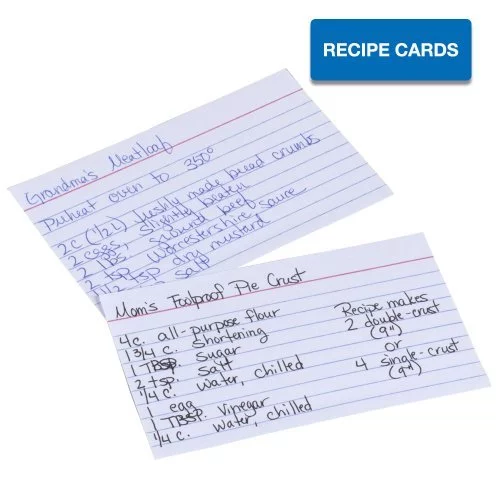 RECIPE CARDS
Grandma's Meatloaf
Preheat oven to 350°
2 c (1/2 L) freshly made bread crumbs
2 eggs, slightly beaten
2 lbs. ground beef
2 tsp Worcestershire sauce
1/2 tsp dry mustard
salt
Mom's Foolproof Pie Crust
4 c. all-purpose flour
1 3/4 c. shortening
1 TBSP sugar
2 tsp. salt
1/4 c. water, chilled
1 egg
1 TBSP. vinegar
1/4 c. water, chilled
Recipe makes
2 double-crust
(9")
or
4 single-crust
(9")